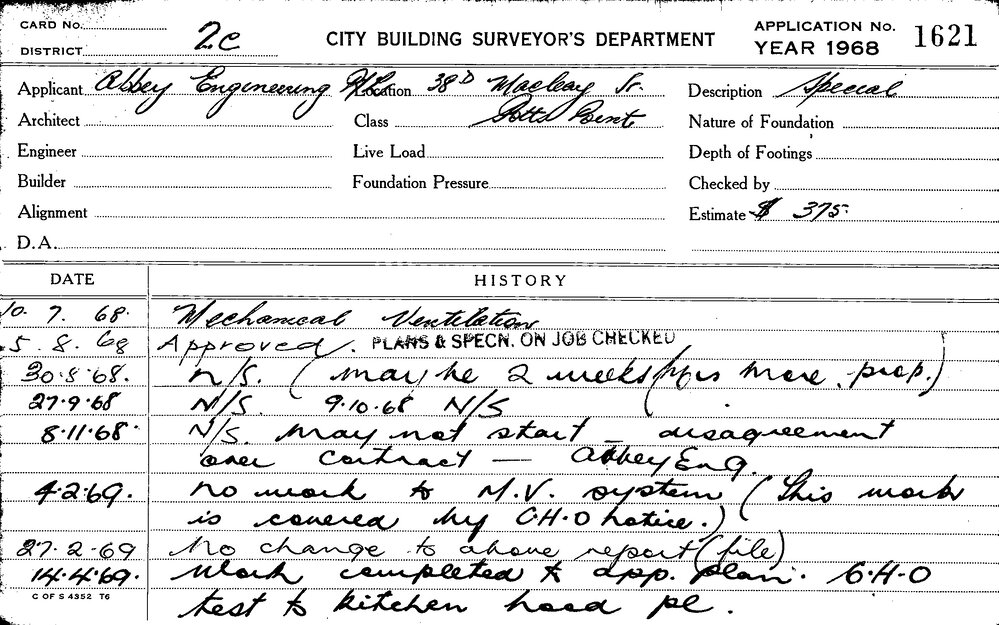 CARD No.
DISTRICT 2c
CITY BUILDING SURVEYOR'S DEPARTMENT
APPLICATION No. 1621
YEAR 1968
Applicant Abbey Engineering P/L Location 38D Macleay St. Description Special
Architect Class Potts Point Nature of Foundation
Engineer Live Load Depth of Footings
Builder Foundation Pressure Checked by
Alignment Estimate $ 375.
D.A.
DATE HISTORY
10. 7. 68. Mechanical Ventilation
5. 8. 68 Approved. PLANS & SPECN. ON JOB CHECKED
30.8.68. N/S. (may be 2 weeks more prop.)
27.9.68 N/S. 9.10.68 N/S
8.11.68. N/S. may not start – disagreement
over contract — Abbey Eng.
4.2.69. No work to M.V. system (This work
is covered by C.H.O notice.)
27.2.69 No change to above report (file)
14.4.69. Work completed to app. plan. C.H.O
C OF S 4352 T6
test to kitchen hood pl.